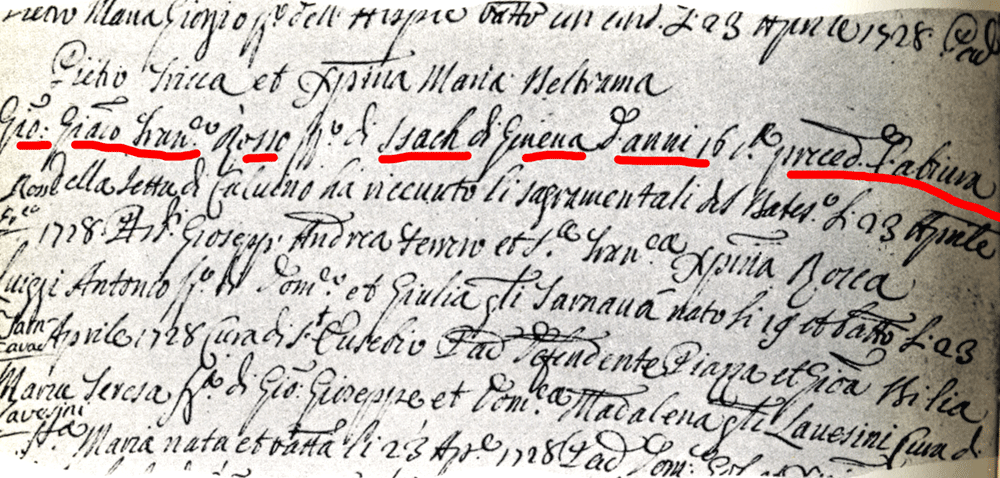 Pietro Maria Giorgio f.º dell' Aᵗᵗo batt.º 23 Aprile 1728. Pad
Pietro Sricca et Xpina Maria Beltrama
Gio: Giaco Fran.co Rosso f.º di Isach di Ginena d'anni 16 preced. l'abiura
della Setta di Caluino ha riceuuto li sagramentali del Bates.º li 23 Aprile
1728. Gioseppe Andrea ferrero et Fran.ca Xpina Rocca
Luiggi Antonio f.º di Dom.co et Giulia gli Tarnauà nato li 19 et batto li 23
Aprile 1728 Cura di S.t Eusebio Pad Defendente Piazza et Gioa Bilia
Maria Teresa f.a di Gio: Giuseppe et Dom.ca Madalena gli Lauesini Cura di
Maria nata et batta li 23 Ap.e 1728 Pad Dom.co